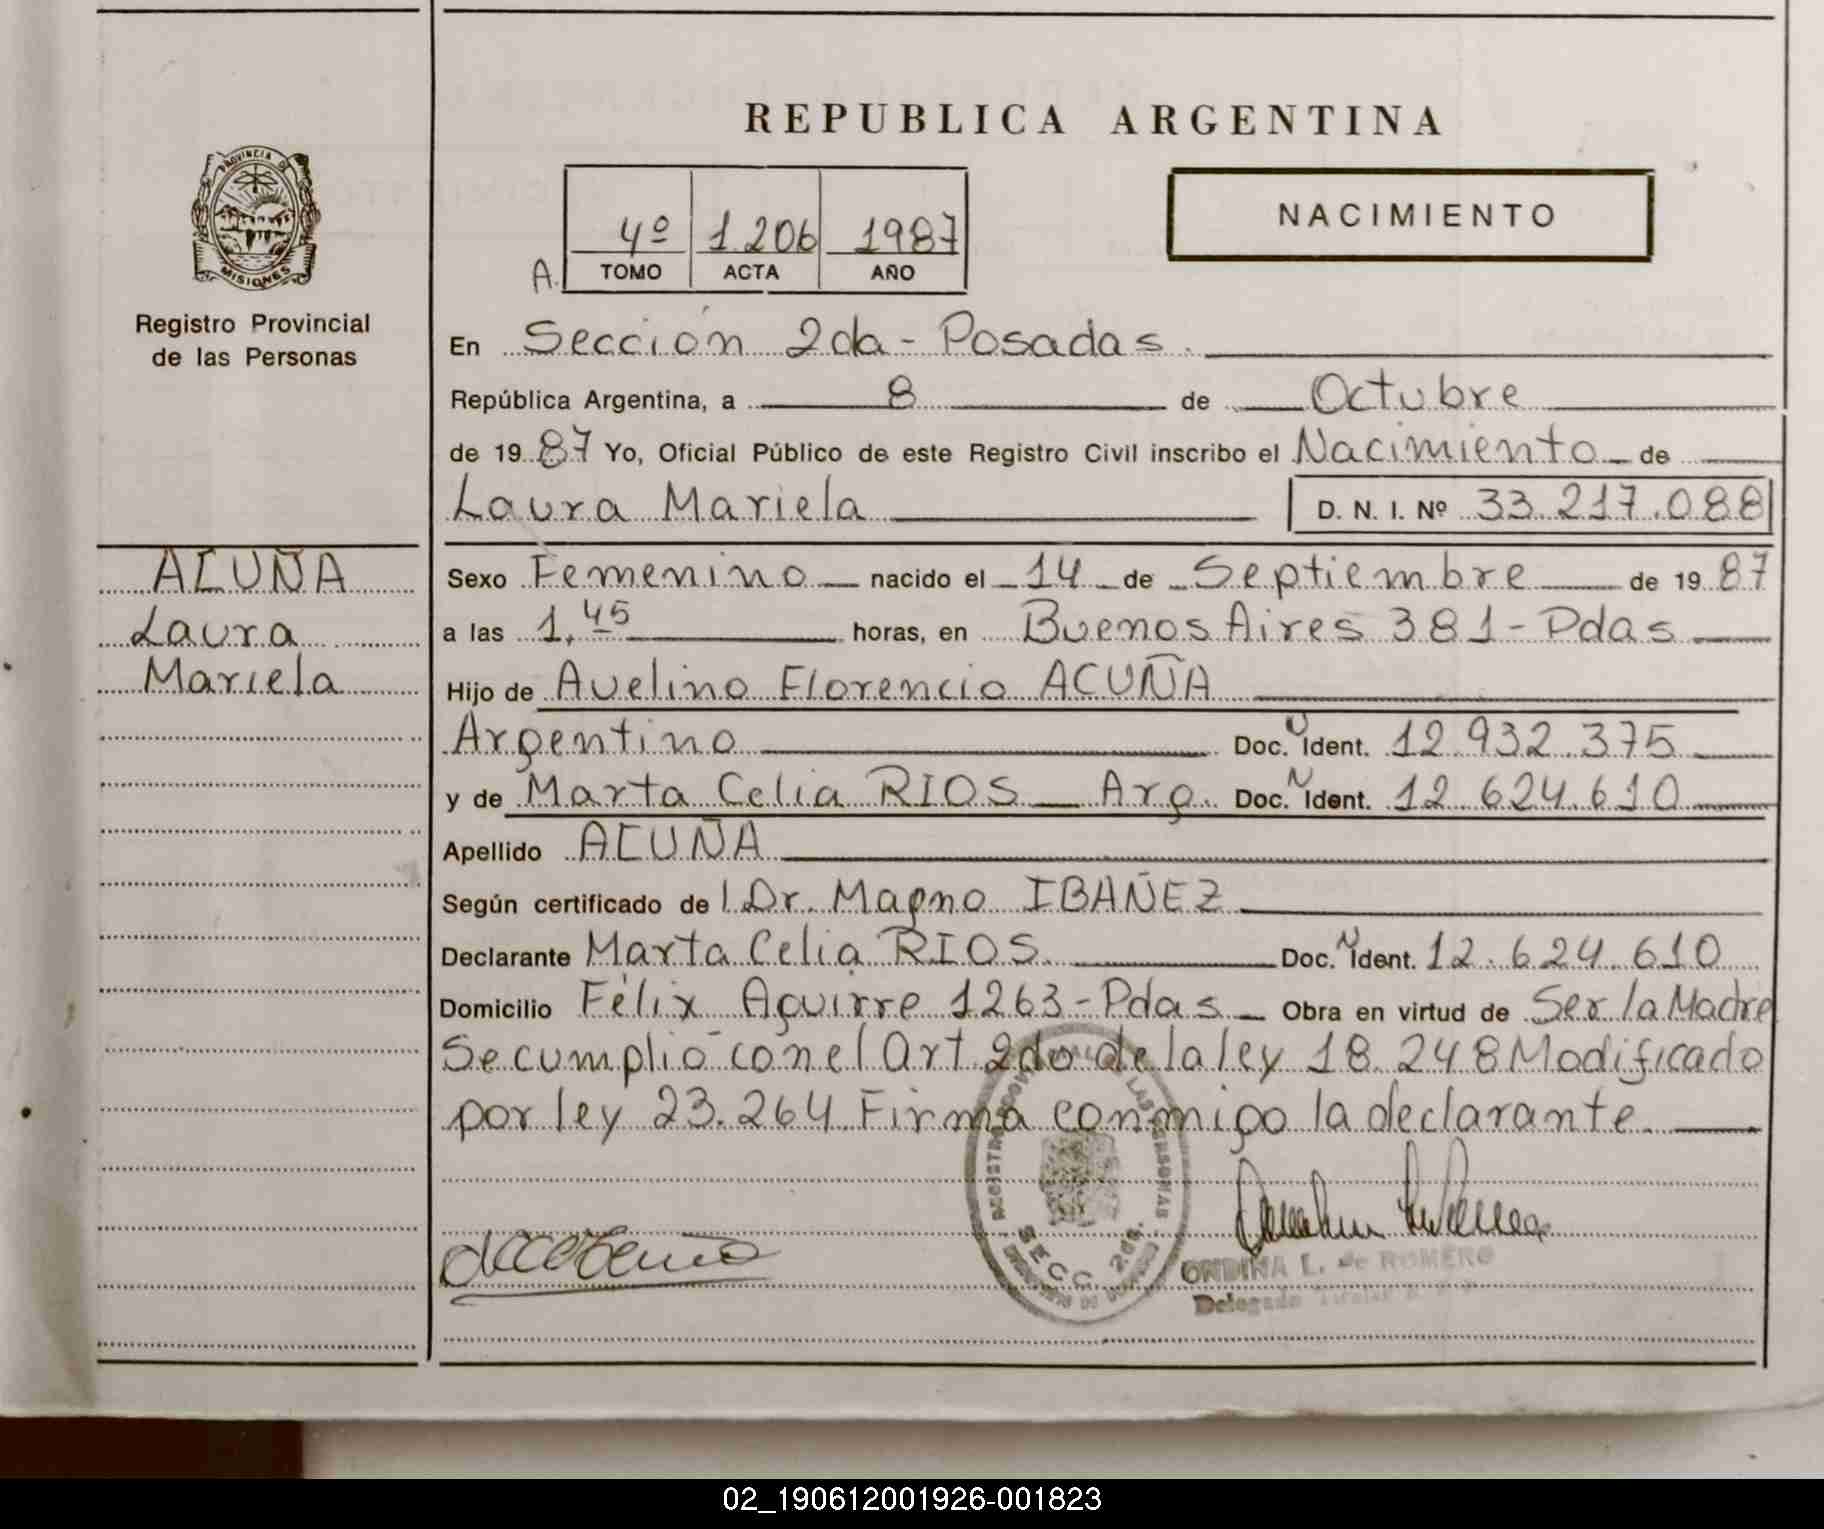 REPUBLICA ARGENTINA
PROVINCIA DE
MISIONES
Registro Provincial
de las Personas
4º 1.206 1987
A. TOMO ACTA AÑO
NACIMIENTO
En Sección 2da - Posadas.
República Argentina, a 8 de Octubre
de 1987 Yo, Oficial Público de este Registro Civil inscribo el Nacimiento de
Laura Mariela D. N. I. Nº 33.217.088
ACUÑA
Laura
Mariela
Sexo Femenino nacido el 14 de Septiembre de 1987
a las 1,45 horas, en Buenos Aires 381 - Pdas
Hijo de Avelino Florencio ACUÑA
Argentino Doc. N Ident. 12.932.375
y de Marta Celia RIOS Arg. Doc. N Ident. 12.624.610
Apellido ACUÑA
Según certificado de l Dr. Magno IBAÑEZ
Declarante Marta Celia RIOS Doc. N Ident. 12.624.610
Domicilio Félix Aguirre 1263 - Pdas Obra en virtud de Ser la Madre
Se cumplió con el Art. 2do de la ley 18.248 Modificado
por ley 23.264 Firma conmigo la declarante.
SECC. 2da.
ONDINA L. de ROMERO
Delegado
02_190612001926-001823